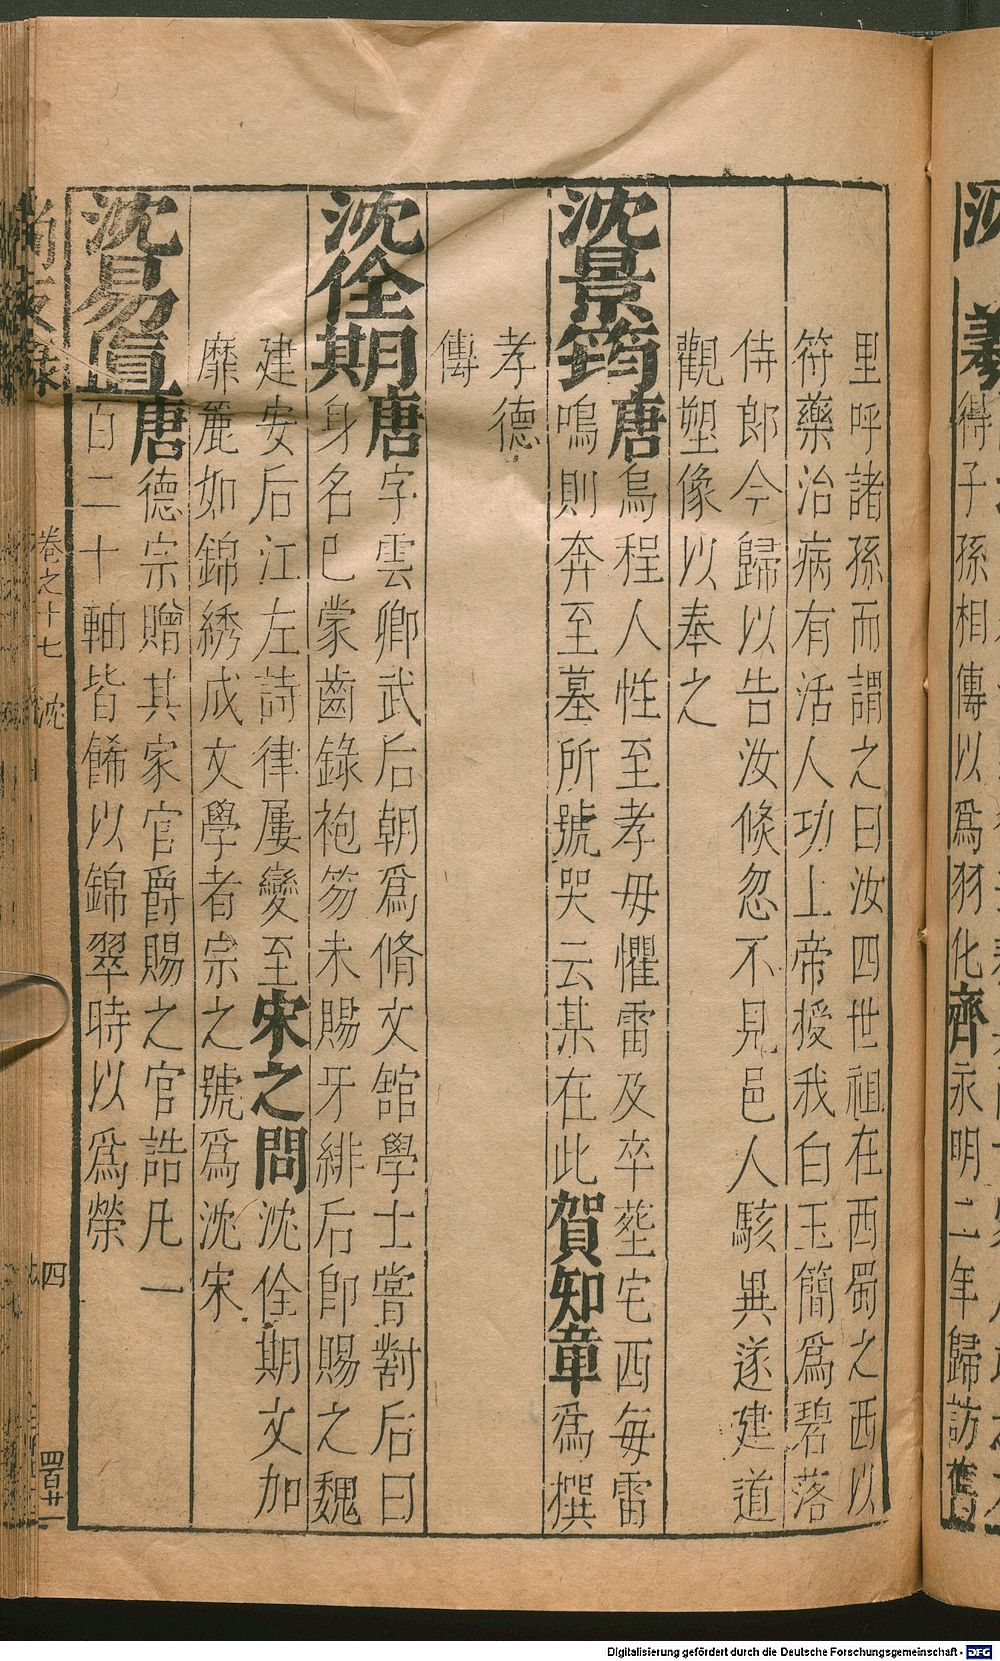 里呼諸孫而謂之曰汝四世祖在西蜀之西以
符藥治病有活人功上帝授我白玉簡爲碧落
侍郎今歸以告汝倏忽不見邑人駭異遂建道
觀塑像以奉之
沈景筠唐烏程人性至孝毋懼雷及卒塟宅西每雷
鳴則奔至墓所號哭云某在此賀知章爲撰
孝德
傳
沈佺期唐字雲卿武后朝爲脩文舘學士嘗對后曰
身名已蒙齒錄袍笏未賜牙緋后卽賜之魏
建安后江左詩律屢變至宋之問沈佺期文加
靡麗如錦綉成文學者宗之號爲沈宋
沈易直唐德宗贈其家官爵賜之官誥凡一
百二十軸皆餙以錦翠時以爲榮
卷之十七 沈 四
四百廿一
沈羲
得子孫相傳以爲羽化齊永明二年歸訪舊
Digitalisierung gefördert durch die Deutsche Forschungsgemeinschaft - DFG